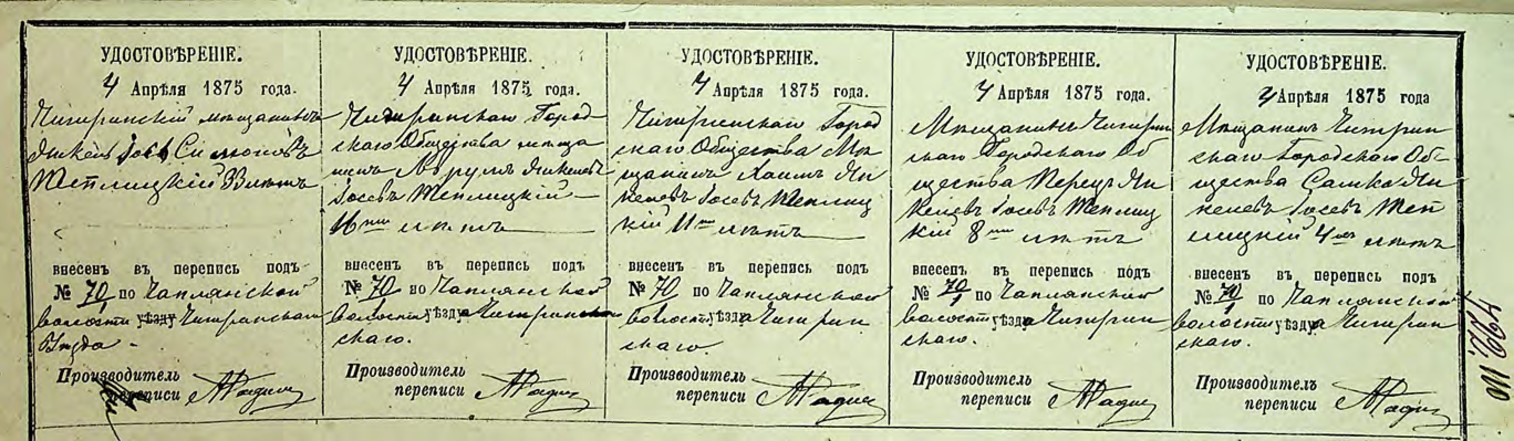 УДОСТОВѢРЕНІЕ.
4 Апрѣля 1875 года.
Чигиринскій мѣщанинъ
Янкель Іось Симоновъ
Теплицкій лѣтъ
внесенъ въ перепись подъ
№ 70/1 по Чаплянской
волости уѣзду Чигиринскаго
Уѣзда
Производитель
переписи
УДОСТОВѢРЕНІЕ.
4 Апрѣля 1875 года.
Чигиринскаго Город-
скаго Общества мѣща
нинъ Янкелевъ
Іосевъ Теплицкій
16ти лѣтъ
внесенъ въ перепись подъ
№ 70/1 по Чаплянской
волости уѣзда Чигирин
скаго.
Производитель
переписи
УДОСТОВѢРЕНІЕ.
4 Апрѣля 1875 года.
Чигиринскаго Город
скаго Общества Мѣ
щанинъ Хаимъ Ян
келевъ Іосевъ Теплиц
кій 11ти лѣтъ
внесенъ въ перепись подъ
№ 70/1 по Чаплянской
волости уѣзда Чигирин
скаго.
Производитель
переписи
УДОСТОВѢРЕНІЕ.
4 Апрѣля 1875 года.
Мѣщанинъ Чигирин
скаго Городскаго Об
щества Перецъ Ян
келевъ Іосевъ Теплиц
кій 8ми лѣтъ
внесенъ въ перепись подъ
№ 70/1 по Чаплянской
волости уѣзда Чигирин
скаго.
Производитель
переписи
УДОСТОВѢРЕНІЕ.
4 Апрѣля 1875 года
Мѣщанинъ Чигирин
скаго Городскаго Об-
щества Сапко Ян
келевъ Іосевъ Теп
лицкій 4хъ лѣтъ
внесенъ въ перепись подъ
№ 70/1 по Чаплянской
волости уѣзда Чигирин
скаго.
Производитель
переписи